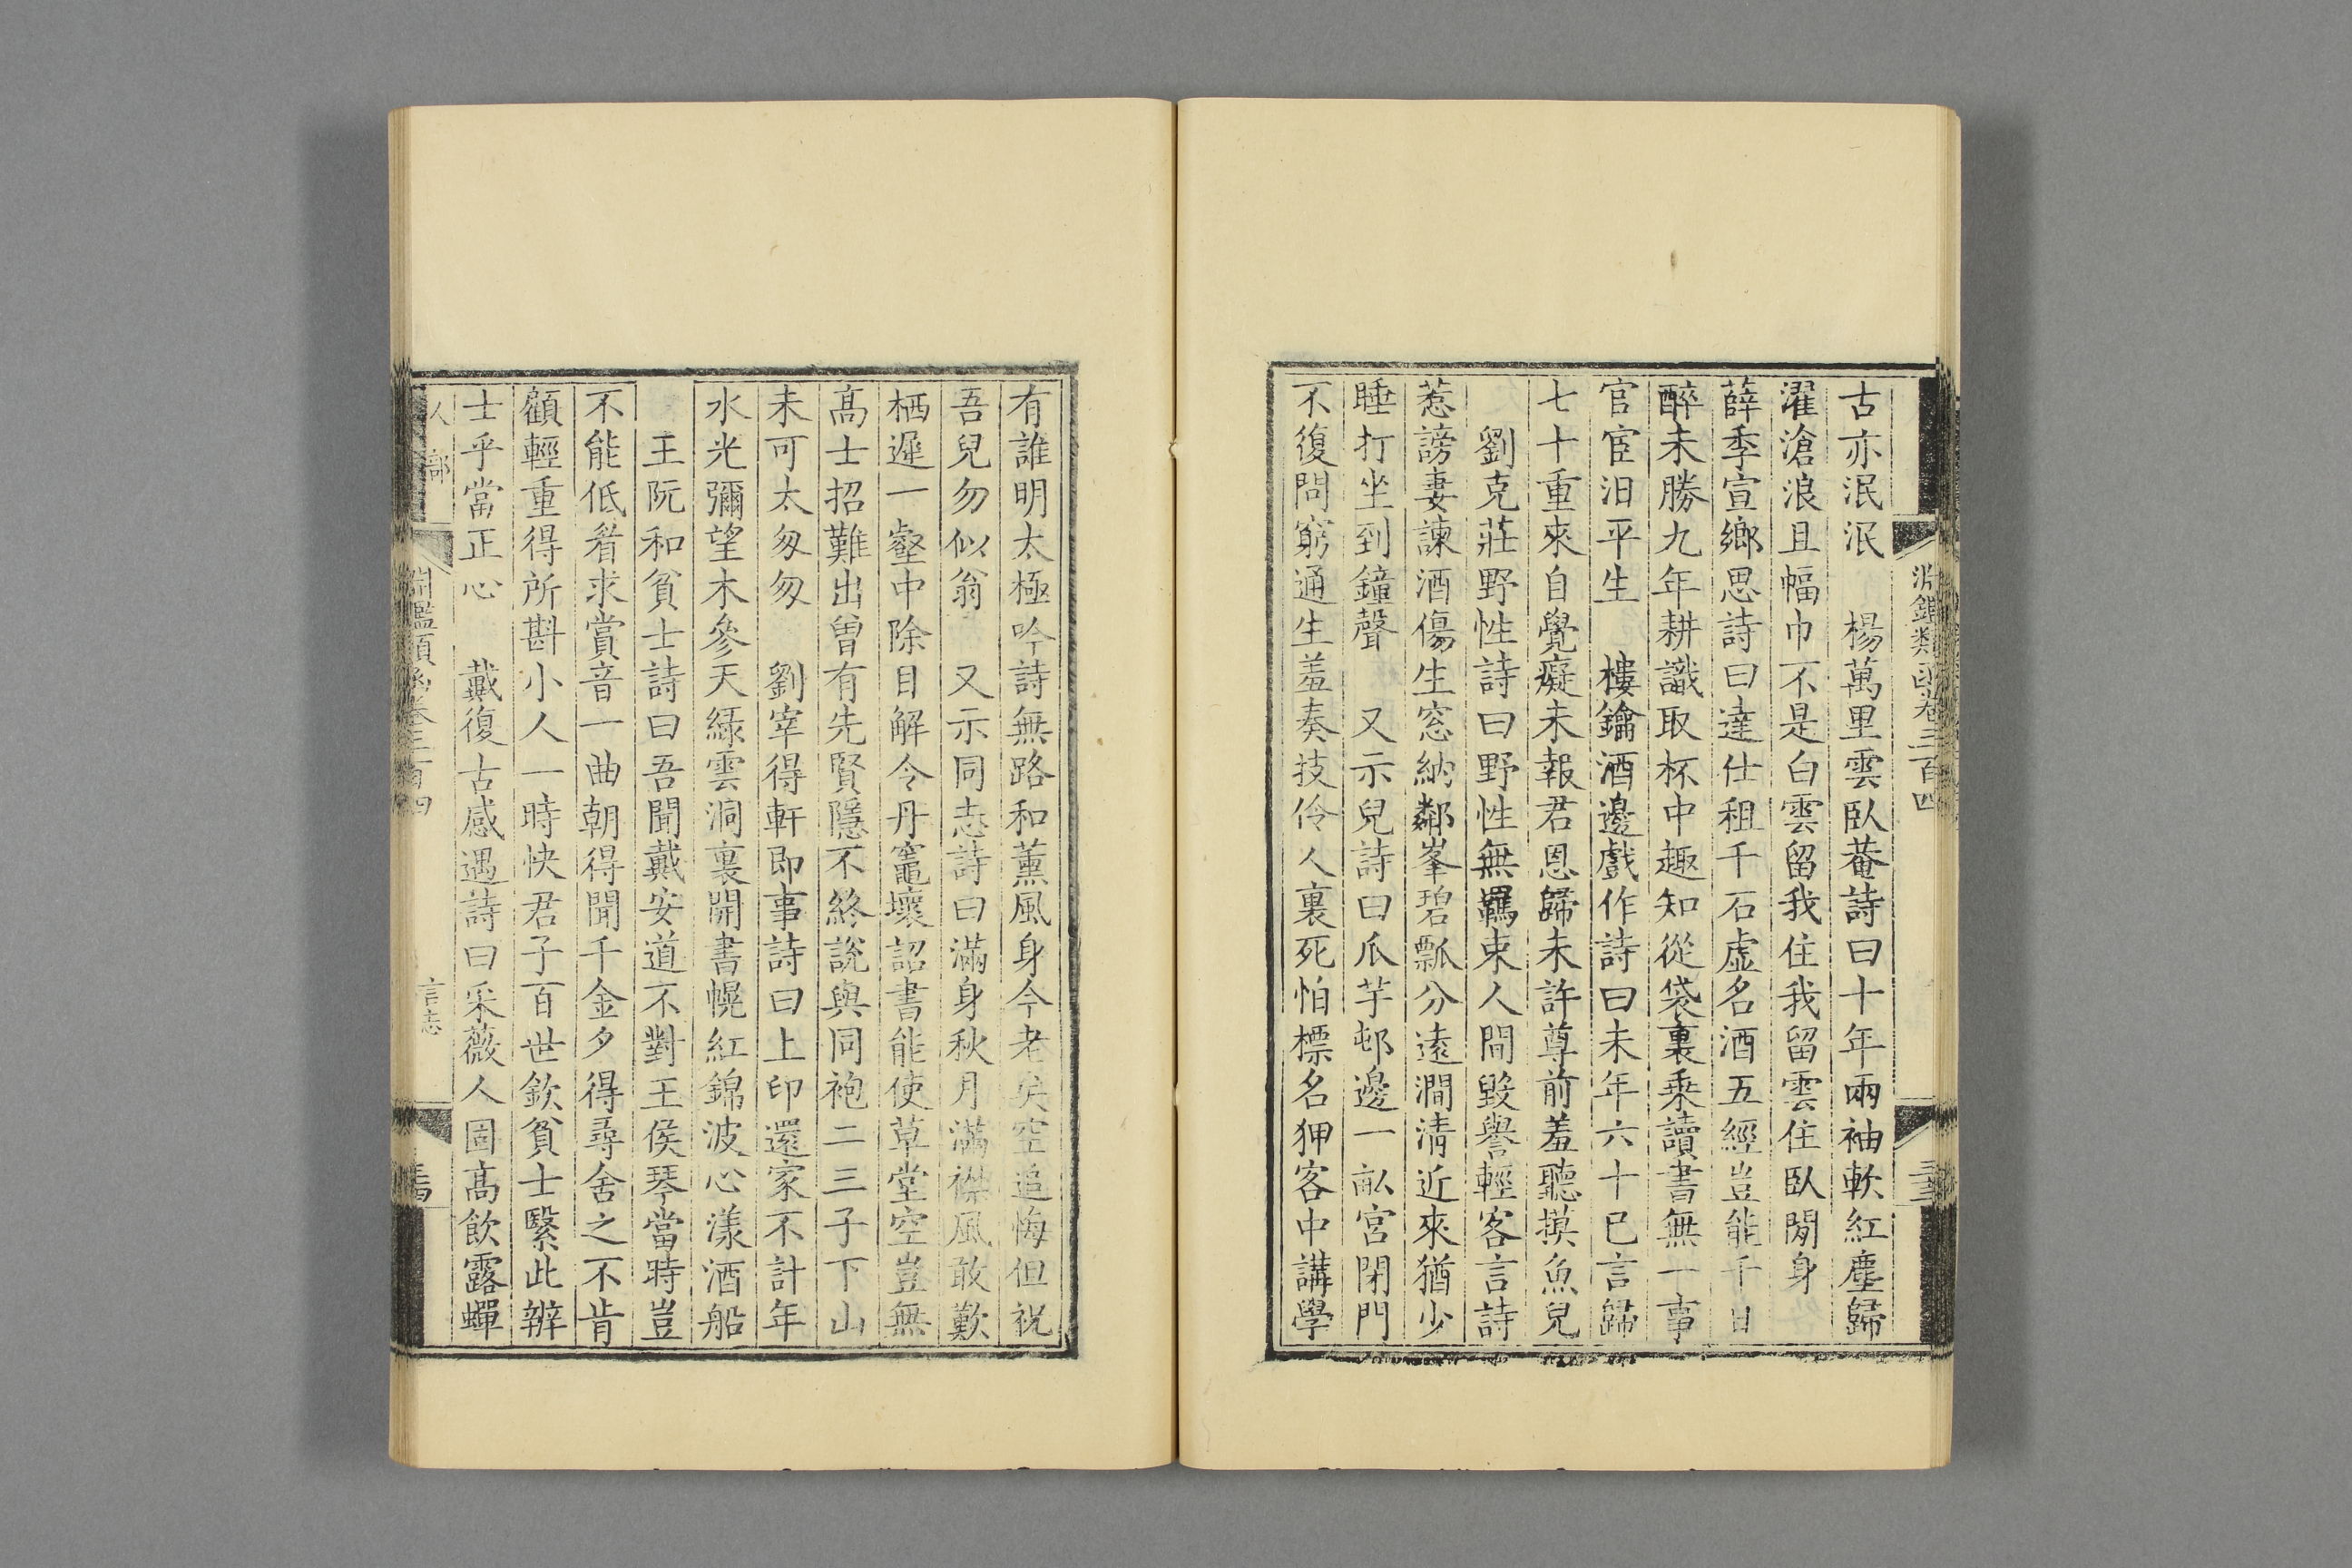 淵鑑類函卷三百四
古亦泯泯　楊萬里雲臥菴詩曰十年兩袖軟紅塵歸
濯滄浪且幅巾不是白雲留我住我留雲住臥閒身
薛季宣鄉思詩曰達仕租千石虛名酒五經豈能千日
醉未勝九年耕識取杯中趣知從袋裏乗讀書無一事
官宦汨平生　樓鑰酒邊戲作詩曰未年六十已言歸
七十重來自覺癡未報君恩歸未許尊前羞聽摸魚兒
劉克莊野性詩曰野性無羈束人間毀譽輕客言詩
惹謗妻諫酒傷生窓納鄰峯碧瓢分遠澗清近來猶少
睡打坐到鐘聲　又示兒詩曰瓜芋邨邊一畝宮閉門
不復問窮通生羞奏技伶人裏死怕標名狎客中講學
有誰明太極吟詩無路和薰風身今老矣空追悔但祝
吾兒勿似翁　又示同志詩曰滿身秋月滿襟風敢歎
栖遲一壑中除目解令丹竈壞詔書能使草堂空豈無
髙士招難出曾有先賢隱不終說與同袍二三子下山
未可太匆匆　劉宰得軒即事詩曰上印還家不計年
水光彌望木參天緑雲洞裏開書幌紅錦波心漾酒船
王阮和貧士詩曰吾聞戴安道不對王侯琴當時豈
不能低着求賞音一曲朝得聞千金夕得尋舍之不肯
顧輕重得所斟小人一時快君子百世欽貧士緊此辨
士乎當正心　戴復古感遇詩曰采薇人固髙飲露蟬
人部
淵鑑類函卷三百四
言志